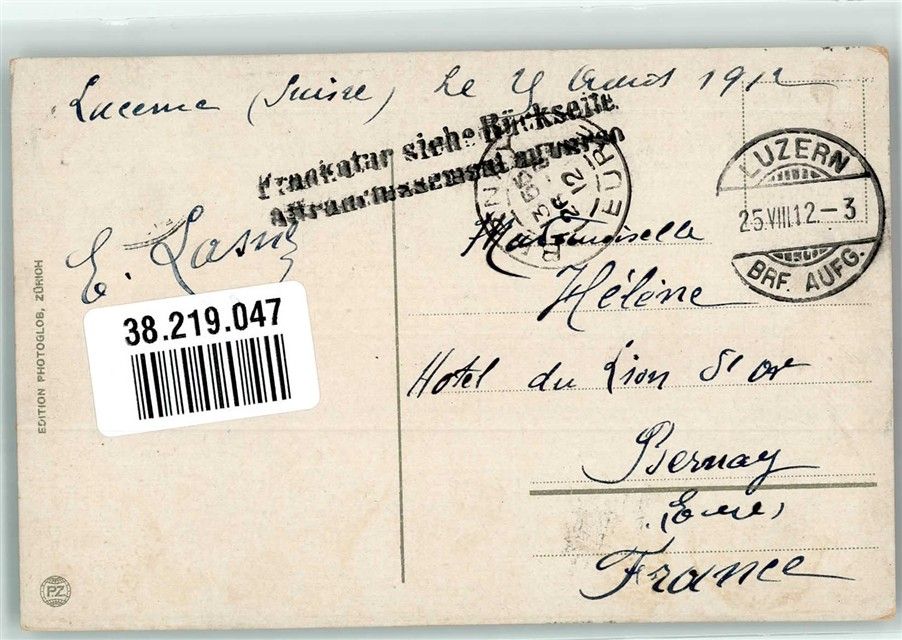 Lucerne (Suisse) Le 25 Août 1912
Frankatur siehe Rückseite
affranchissement au verso
3 55
26
12
EURE
LUZERN
25.VIII.12-3
BRF. AUFG.
E.
Mademoiselle
Hélène
Hotel du Lion d'or
Bernay
(Eure)
France
38.219.047
EDITION PHOTOGLOB, ZÜRICH
P.Z.